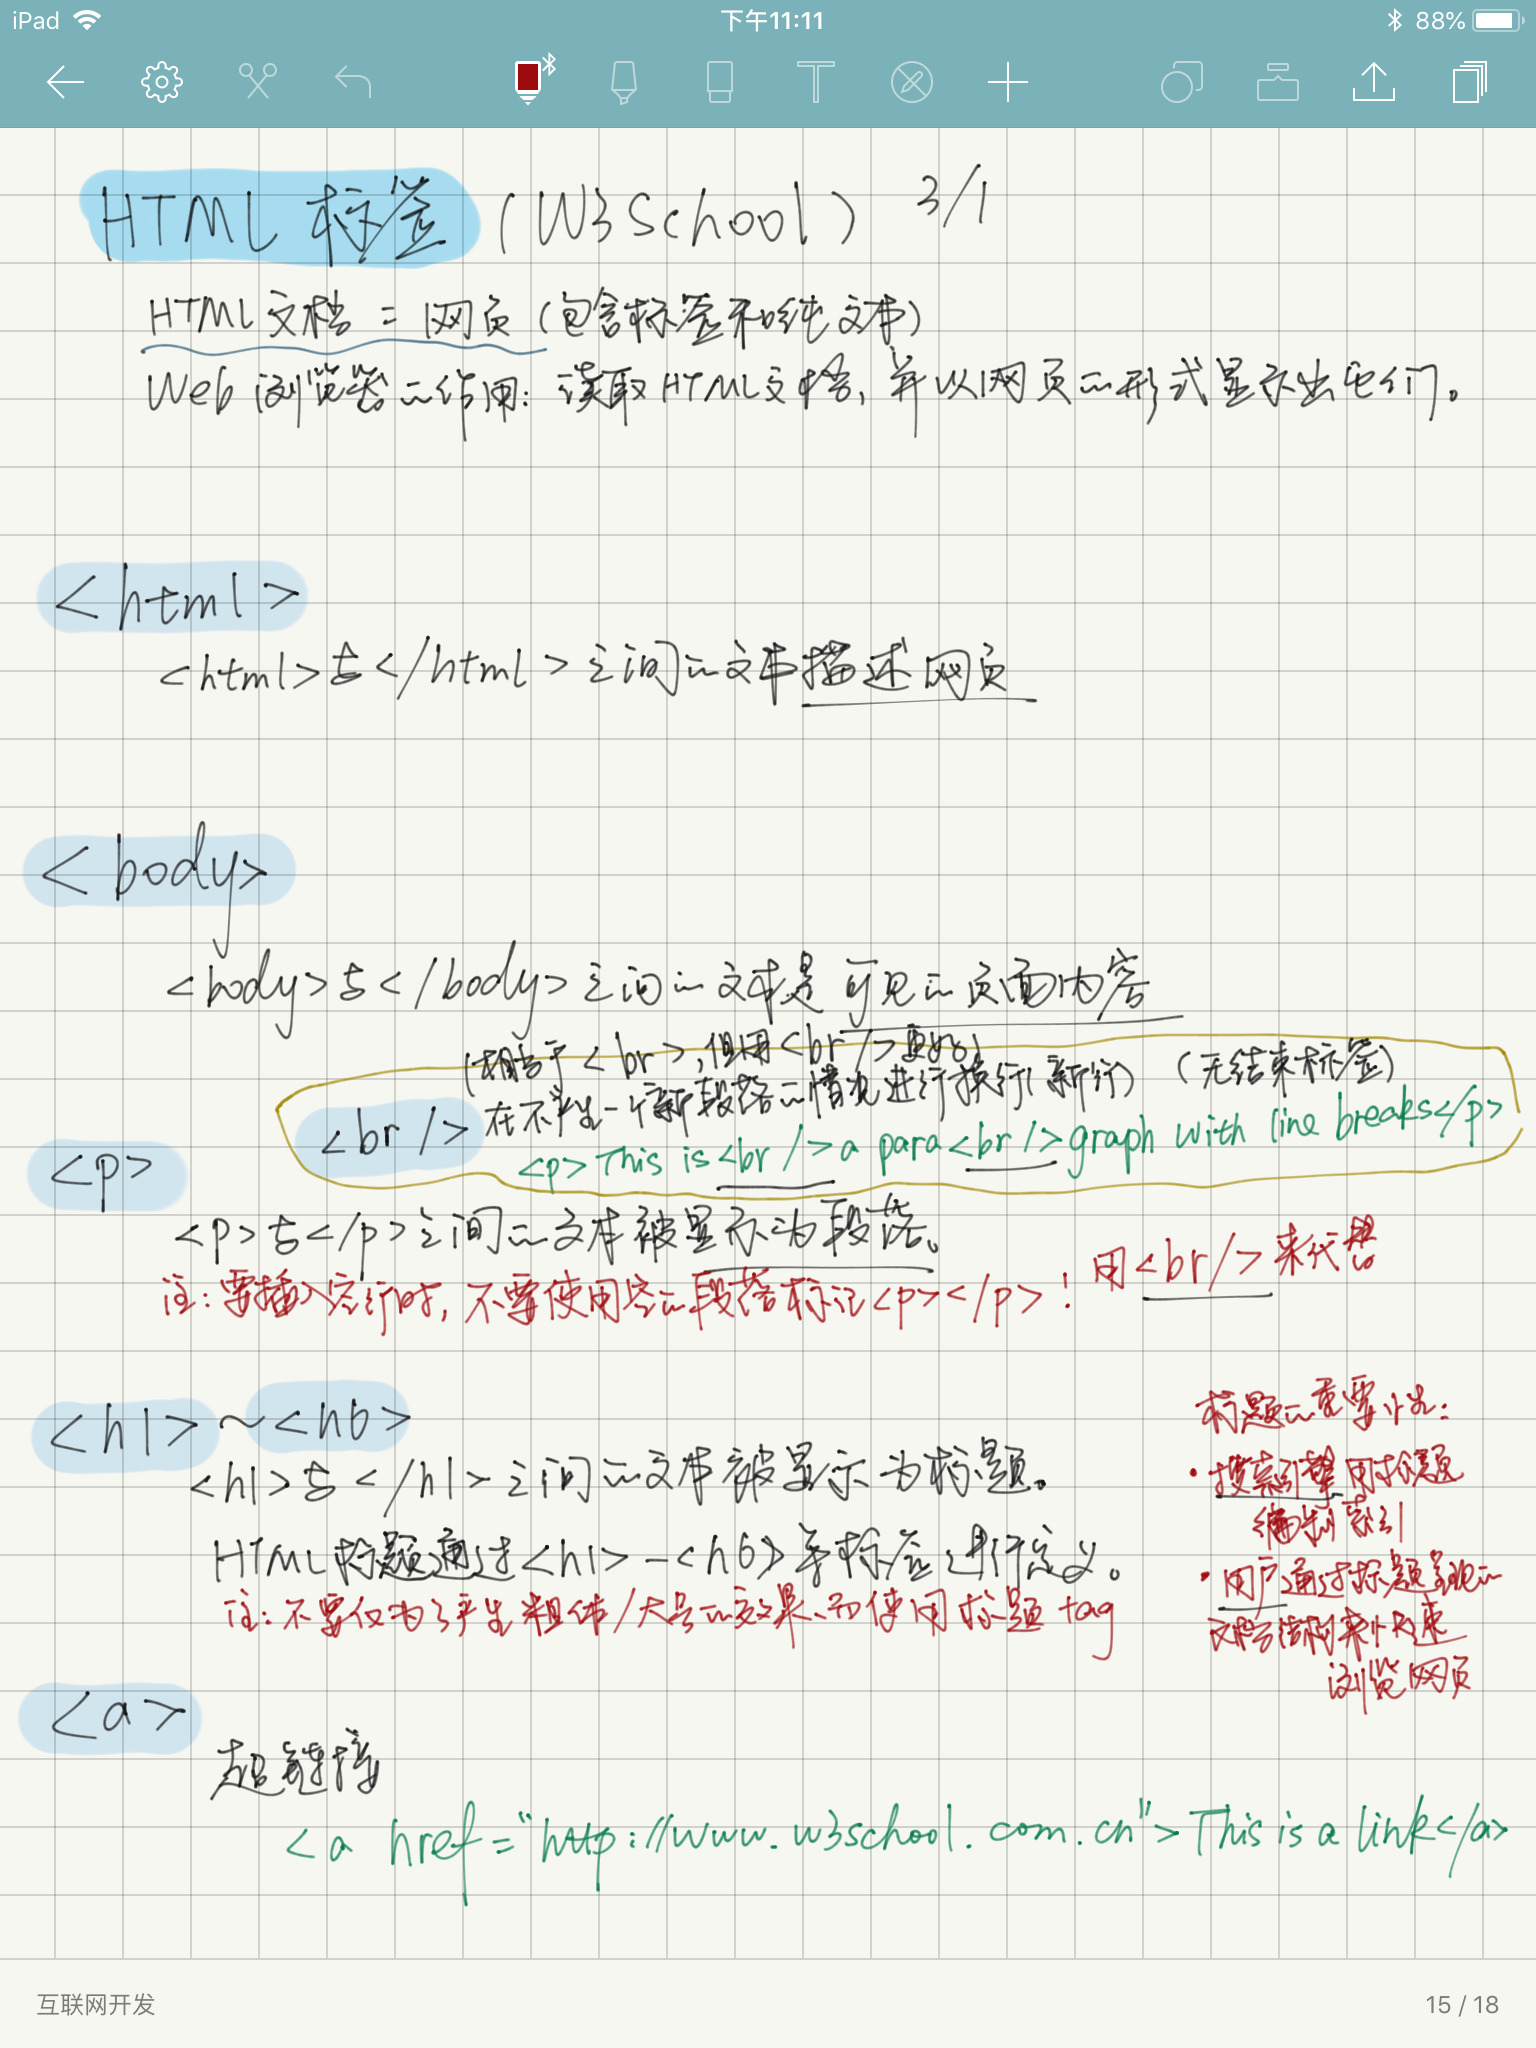 iPad
下午11:11
88%
HTML 标签 (W3School) 3/1
HTML文档 = 网页 (包含标签和纯文本)
Web 浏览器的作用: 读取HTML文档, 并以网页的形式显示出它们。
<html>
<html>与</html>之间的文本描述网页
<body>
<body>与</body>之间的文本是可见的页面内容
(相当于<br>,但用<br />更好)
在不产生一个新段落的情况进行换行(新行) (无结束标签)
<br />
<p>This is<br />a para<br />graph with line breaks</p>
<p>
<p>与</p>之间的文本被显示为段落。
注:要插入空行时, 不要使用空的段落标记<p></p>! 用<br/>来代替
<h1>~<h6>
<h1>与</h1>之间的文本被显示为标题。
HTML标题通过<h1>-<h6>等标签进行定义。
注:不要仅为了产生粗体/大号的效果而使用标题 tag
标题的重要性:
·搜索引擎用标题
编制索引
·用户通过标题呈现的
文档结构来快速
浏览网页
<a>
超链接
<a href="http://www.w3school.com.cn">This is a link</a>
互联网开发
15 / 18